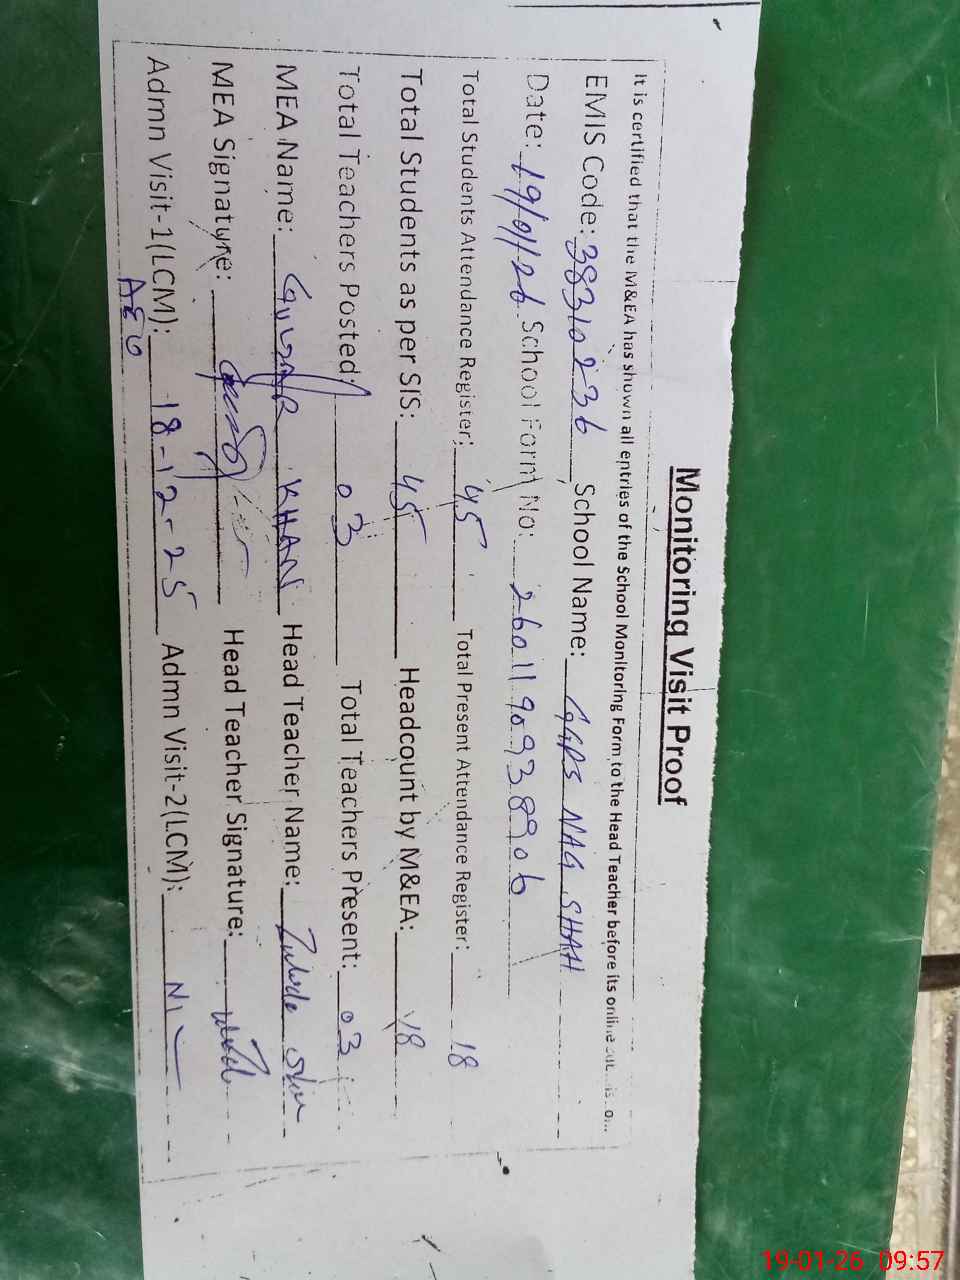 Monitoring Visit Proof
It is certified that the M&EA has shown all entries of the School Monitoring Form to the Head Teacher before its online
EMIS Code: 38310236 School Name: GGPS NAG SHAH
Date: 19/01/26 School Form No: 2601190938906
Total Students Attendance Register: 45 Total Present Attendance Register: 18
Total Students as per SIS: 45 Headcount by M&EA: 18
Total Teachers Posted: 03 Total Teachers Present: 03
MEA Name: GULZAR KHAN Head Teacher Name:
MEA Signature: Head Teacher Signature:
Admn Visit-1(LCM): 18-12-25 Admn Visit-2(LCM): NIL
AEO
19-01-26 09:57